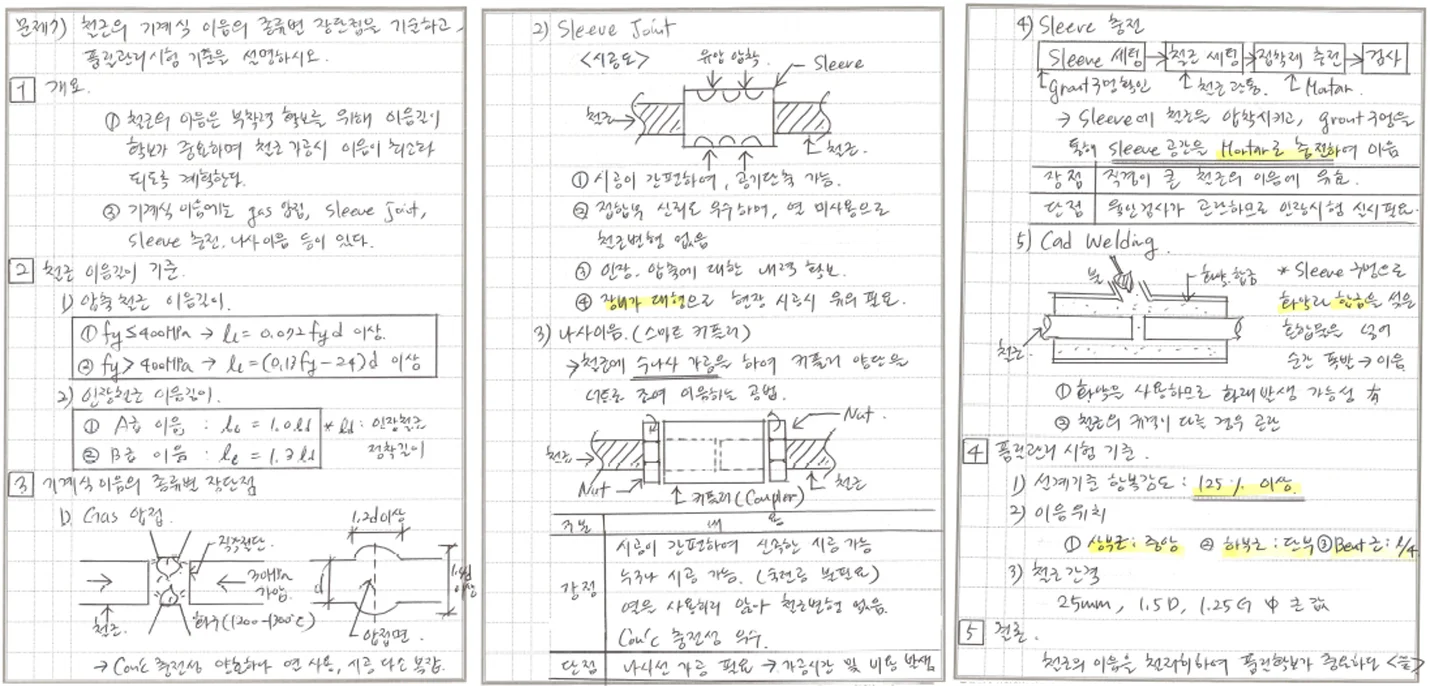 문제7) 철근의 기계식 이음의 종류별 장단점을 기술하고,
품질관리시험 기준을 설명하시오.
1 개요.
① 철근의 이음은 부착력 확보를 위해 이음길이
확보가 중요하며 철근 가공시 이음이 최소화
되도록 계획한다.
② 기계식 이음에는 gas 압접, sleeve joint,
sleeve 충전, 나사이음 등이 있다.
2 철근 이음길이 기준.
1) 압축 철근 이음길이.
① fy≤400MPa → ll = 0.072 fy d 이상.
② fy> 400MPa → ll=(0.13fy-24)d 이상
2) 인장철근 이음길이.
① A급 이음 : ll = 1.0ld * ld : 인장철근
② B급 이음 : ll = 1.3ld 정착길이
3 기계식 이음의 종류별 장단점
1) Gas 압접.
직각절단
1.2d이상
30MPa
가압.
d
1.4d
이상
철근.
화구(1200~1300℃)
압접면.
→ Con'c 충전성 양호하나 열 사용, 시공 다소 복잡.
2) Sleeve Joint
<시공도>
유압 압착.
Sleeve
철근
철근.
① 시공이 간편하여, 공기단축 가능.
② 접합부 신뢰도 우수하며, 열 미사용으로
철근변형 없음
③ 인장. 압축에 대한 내력 확보.
④ 장비가 대형으로 현장 시공시 유의 필요.
3) 나사이음. (스마트 커플러)
→철근에 수나사 가공을 하여 커플러 양단을
너트로 조여 이음하는 공법.
Nut.
철근
Nut
커플러(Coupler)
철근
구분 내 용
장점
시공이 간편하여 신속한 시공 가능
누구나 시공 가능. (숙련공 불필요)
열을 사용하지 않아 철근변형 없음.
Con'c 충전성 우수.
단점 나사선 가공 필요 → 가공시간 및 비용 발생.
4) Sleeve 충전
Sleeve 세팅 → 철근 세팅 → 접착제 충전 → 검사
grout구멍확인 철근 관통. Motar.
→ Sleeve에 철근을 압착시키고, grout 구멍을
통해 sleeve 공간을 Motar로 충전하여 이음
장점 직경이 큰 철근의 이음에 유효.
단점 육안검사가 곤란하므로 인장시험 실시필요.
5) Cad Welding.
불
화약.합금
철근.
* Sleeve 구멍으로
화약과 합금을 섞은
혼합물을 넣어
순간 폭발 → 이음
① 화약을 사용하므로 화재발생 가능성 有
② 철근의 규격이 다른 경우 곤란
4 품질관리 시험 기준.
1) 설계기준 항복강도 : 125% 이상.
2) 이음위치
① 상부근: 중앙 ② 하부근 : 단부 ③Bent근: l/4
3) 철근간격
25mm, 1.5D, 1.25G 中 큰 값
5 결론.
철근의 이음을 철저히하여 품질확보가 중요하다 <끝>